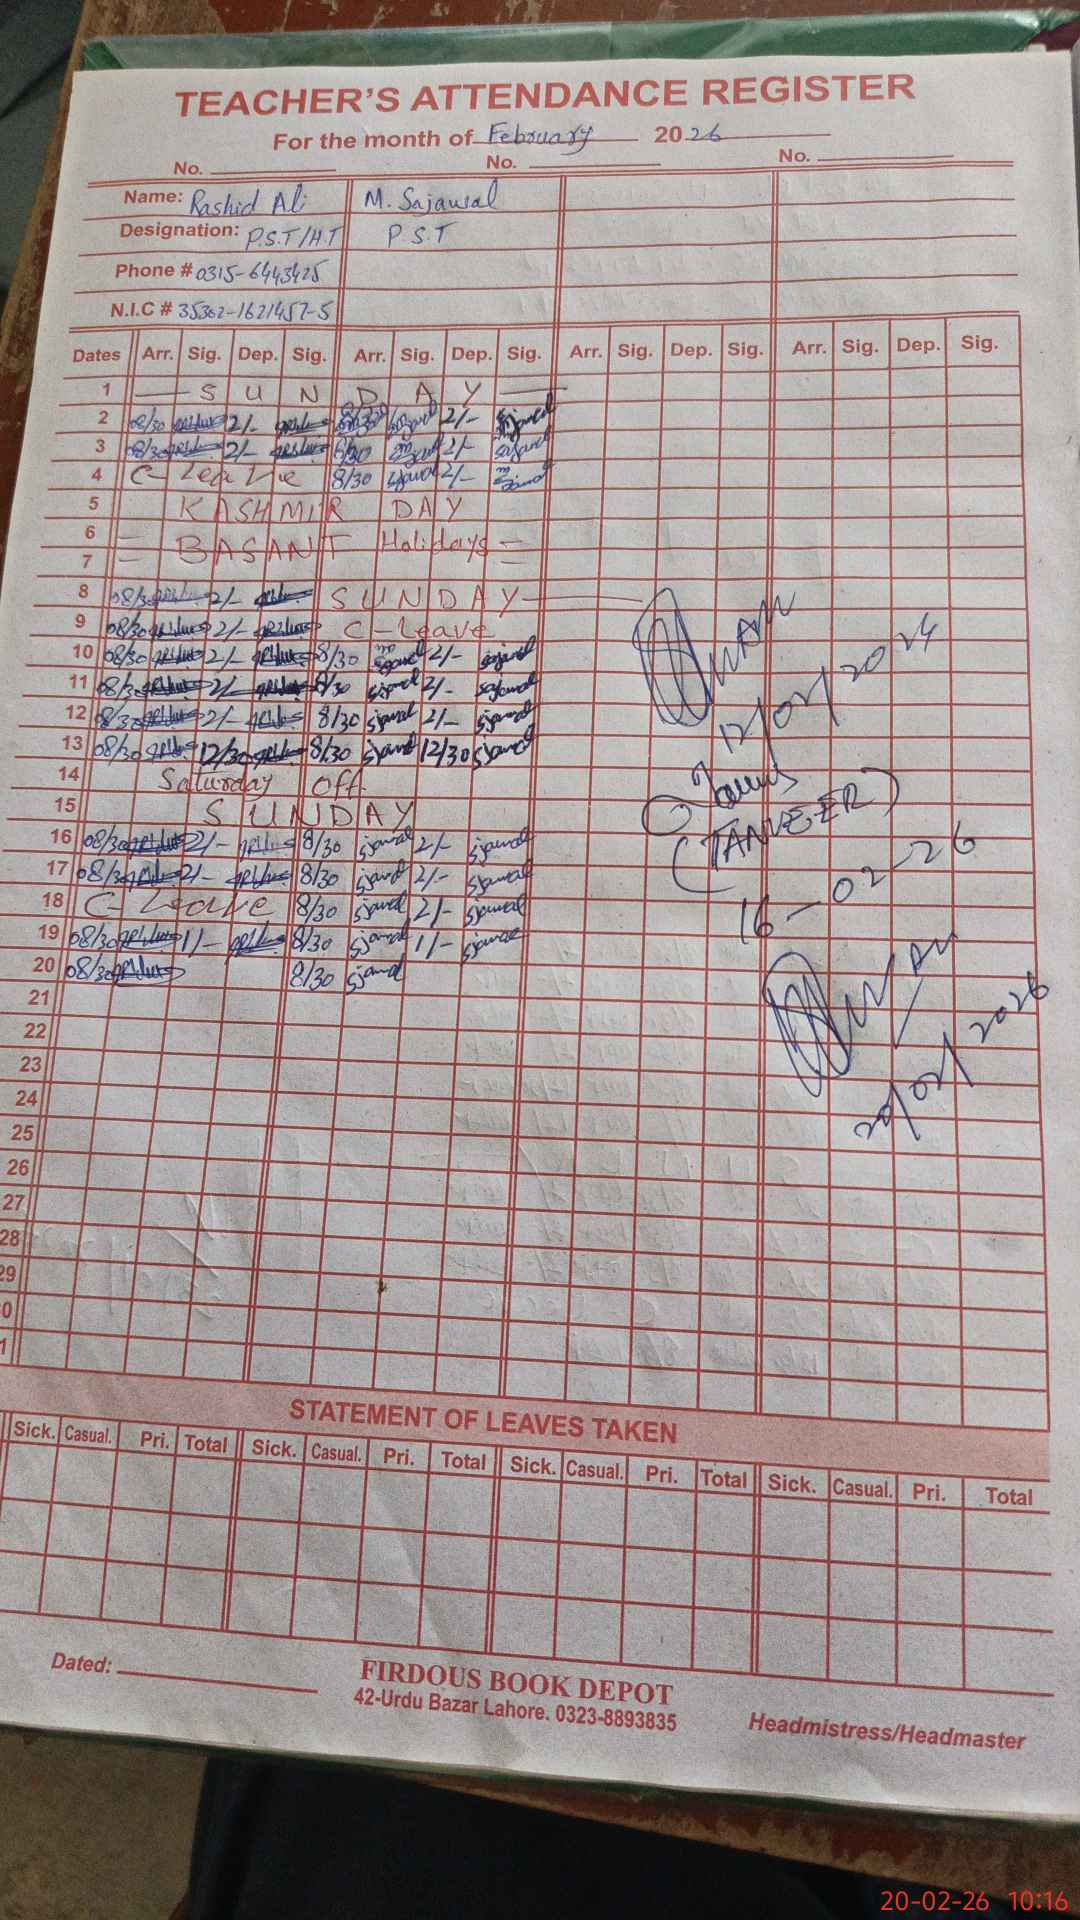 TEACHER'S ATTENDANCE REGISTER
For the month of February 2026
No. No. No.
Name: Rashid Ali M. Sajawal
Designation: P.S.T/H.T P.S.T
Phone # 0315-6443425
N.I.C # 35302-1621457-5
Dates Arr. Sig. Dep. Sig. Arr. Sig. Dep. Sig. Arr. Sig. Dep. Sig. Arr. Sig. Dep. Sig.
1 — S U N D A Y —
2 08/30 2/- 8/30 Sajawal 2/- Sajawal
3 08/30 2/- 8/30 Sajawal 2/- Sajawal
4 C-Leave 8/30 Sjawal 2/- Sjawal
5 KASHMIR DAY
6 = BASANT Holidays =
7
8 08/30 2/- SUNDAY —
9 08/30 2/- C-Leave
10 08/30 2/- 8/30 Sjawal 2/- Sajawal
11 08/30 2/- 8/30 Sjawal 2/- Sajawal
12 08/30 2/- 8/30 Sjawal 2/- Sjawal
13 08/30 12/30 8/30 Sjawal 12/30 Sjawal
14 Saturday Off
15 SUNDAY
16 08/30 2/- 8/30 Sjawal 2/- Sjawal
17 08/30 2/- 8/30 Sjawal 2/- Sjawal
18 C-Leave 8/30 Sjawal 2/- Sjawal
19 08/30 1/- 8/30 Sjawal 1/- Sjawal
20 08/30 8/30 Sjawal
21
22
23
24
25
26
27
28
29
0
1
12/02/2024
(TANVEER)
16-02-26
20/02/2026
STATEMENT OF LEAVES TAKEN
Sick. Casual. Pri. Total Sick. Casual. Pri. Total Sick. Casual. Pri. Total Sick. Casual. Pri. Total
Dated:
FIRDOUS BOOK DEPOT
42-Urdu Bazar Lahore. 0323-8893835
Headmistress/Headmaster
20-02-26 10:16